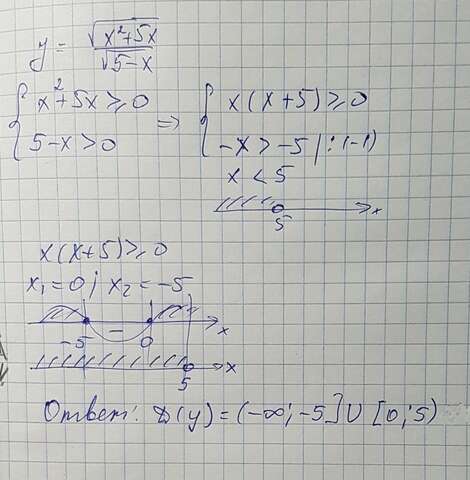 y = √(x²+5x) / √(5-x)
{ x²+5x ≥ 0
5-x > 0 => { x(x+5) ≥ 0
-x > -5 | : (-1)
x < 5
5 x
x(x+5) ≥ 0
x₁ = 0; x₂ = -5
-5 - 0 x
5 x
Ответ: D(y) = (-∞; -5] ∪ [0; 5)